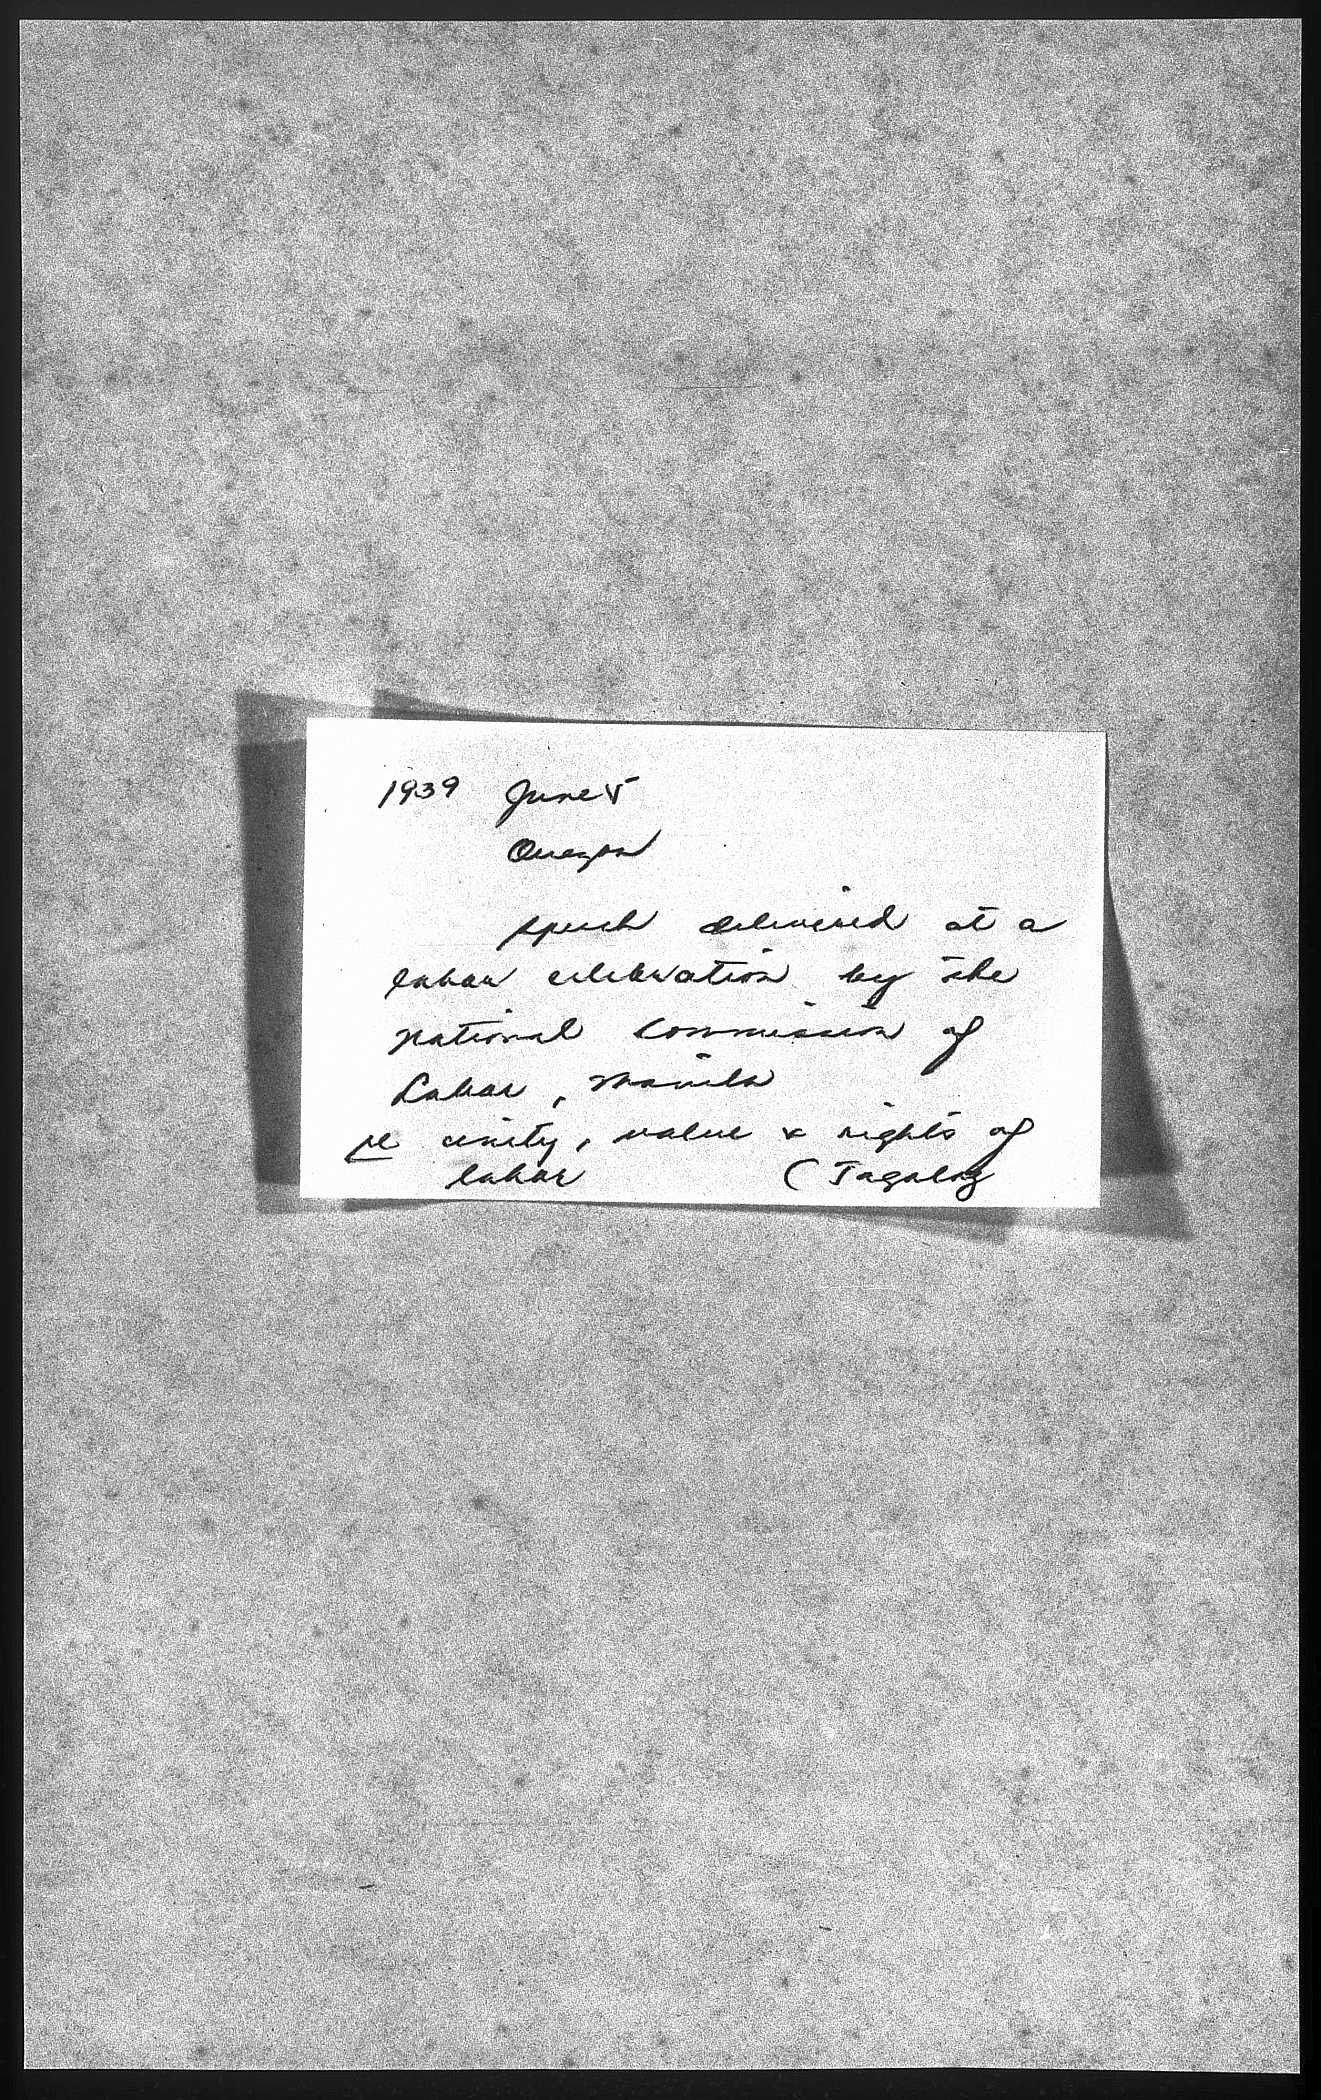 1939 June 5
Quezon
speech delivered at a
labor celebration by the
national commission of
Labor, Manila
re unity, value & rights of
labor (Tagalog